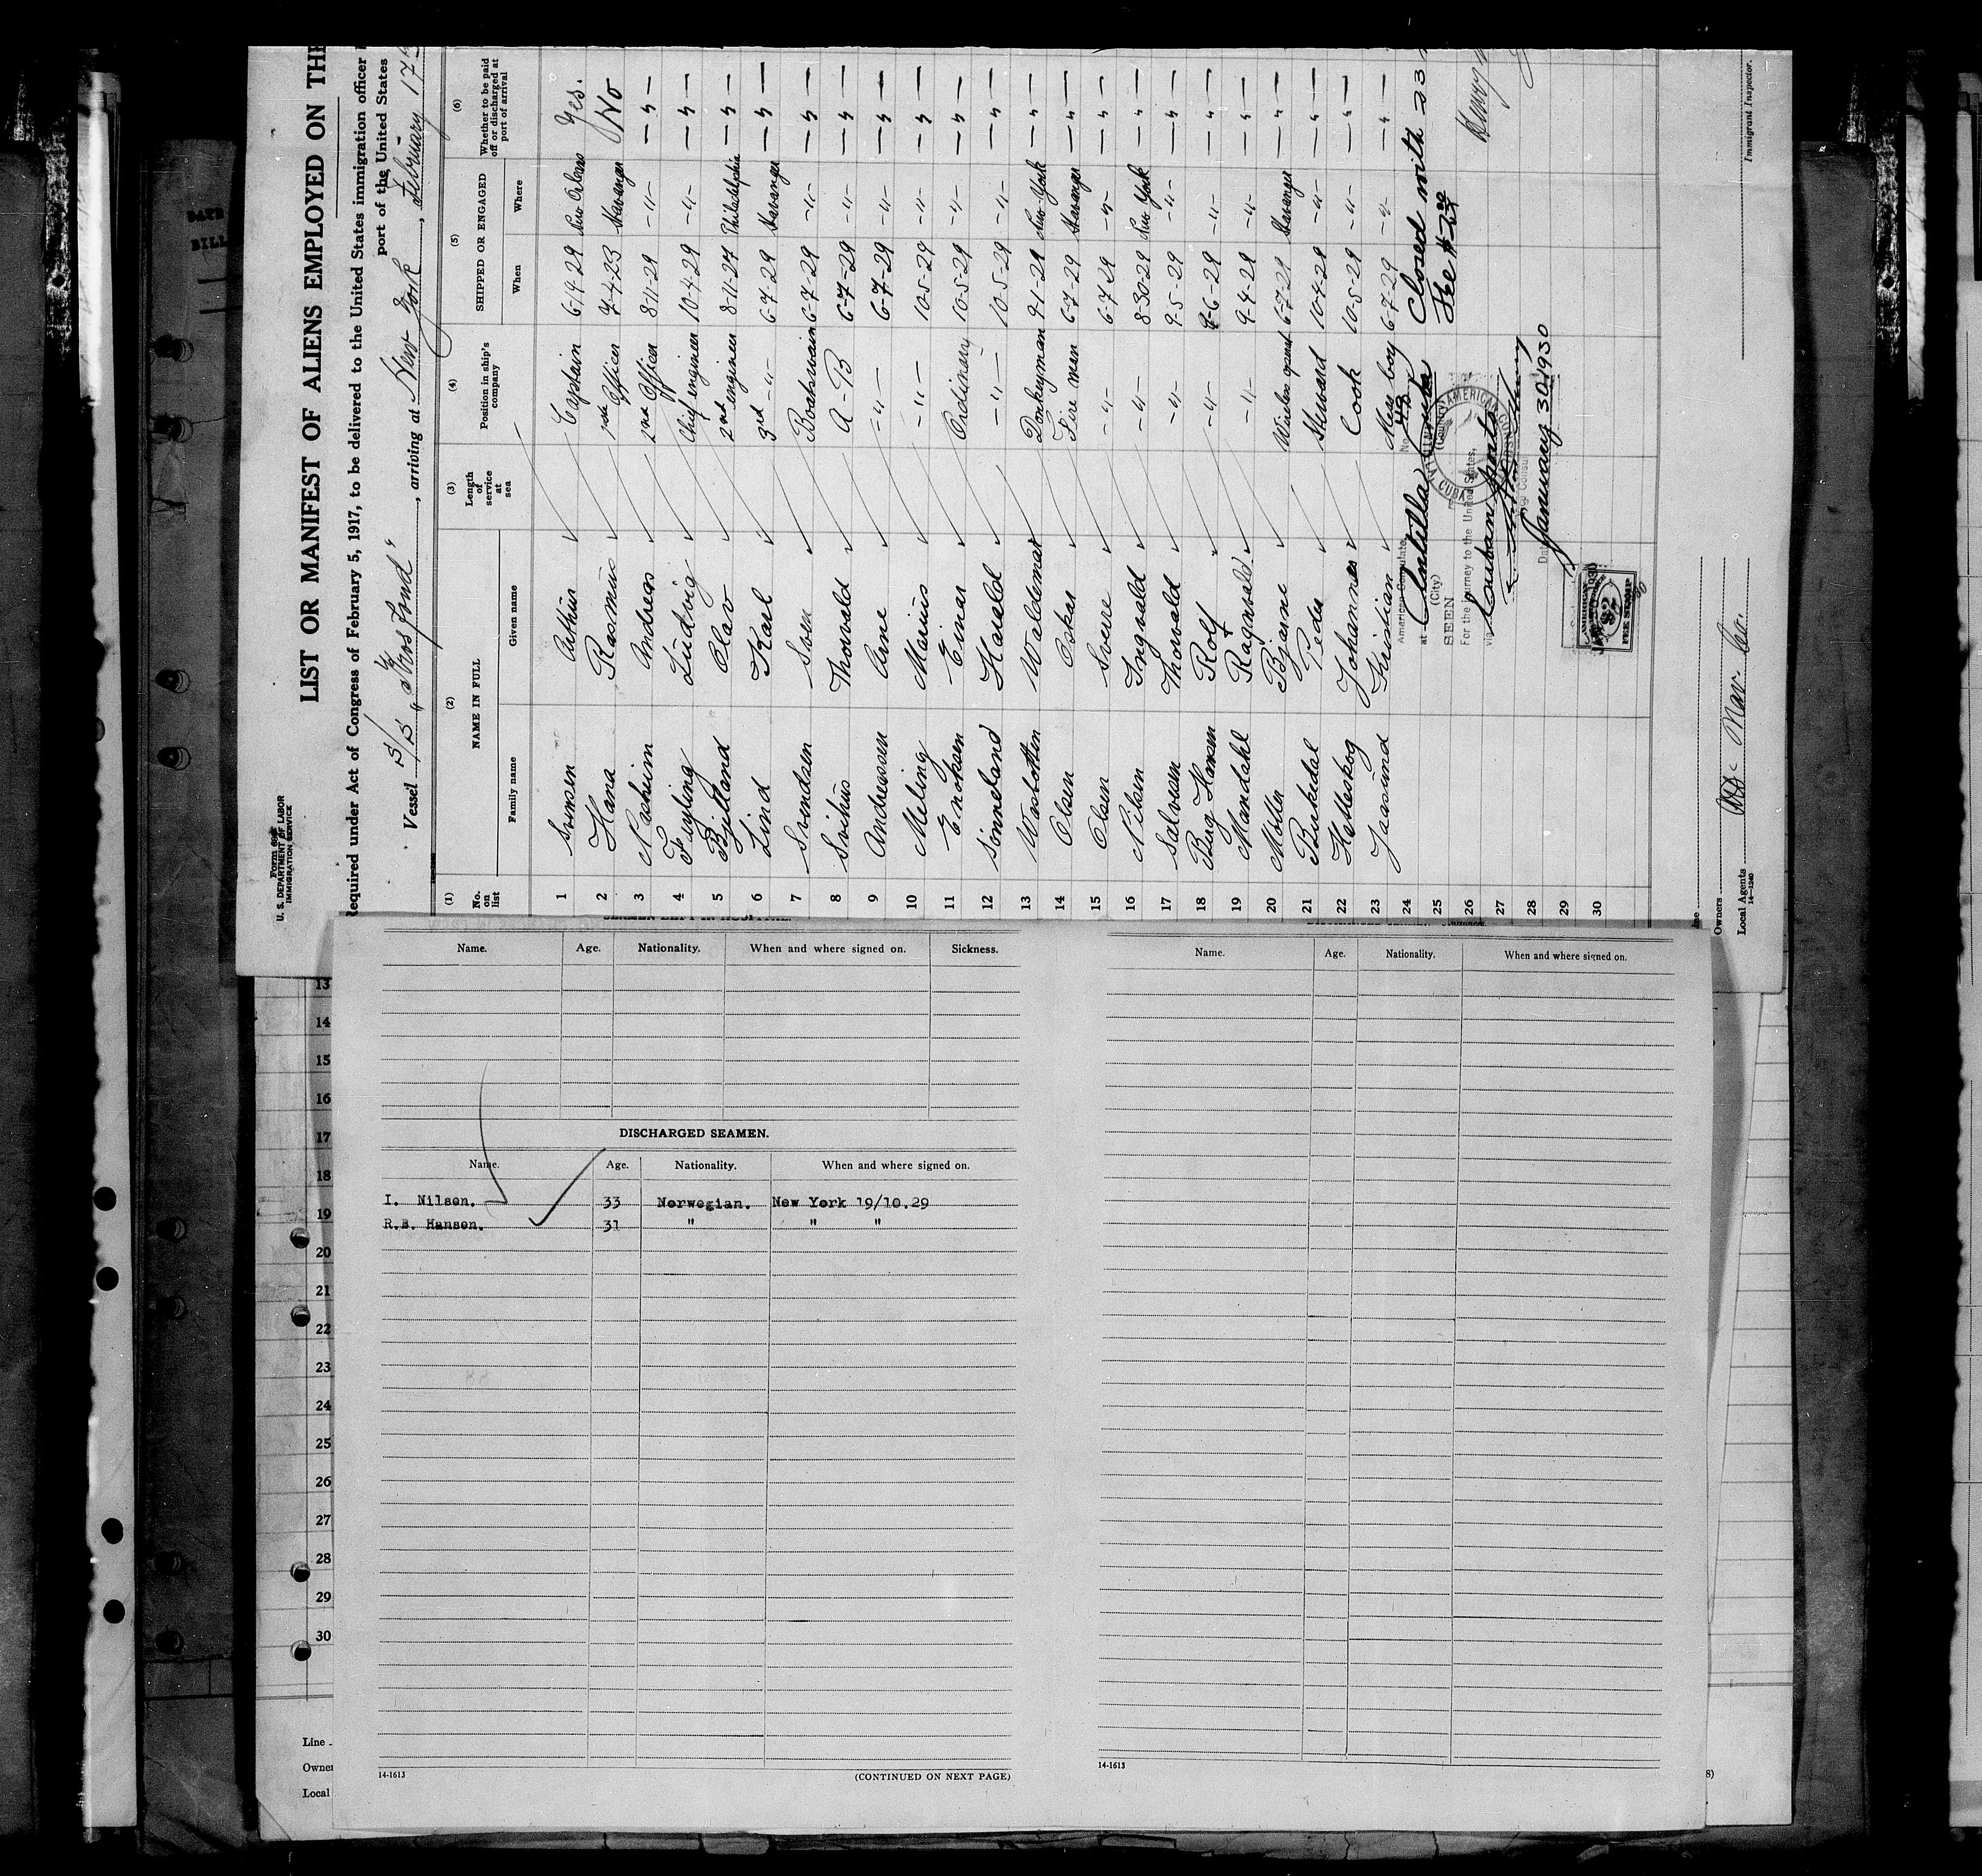 Form 689
U. S. DEPARTMENT OF LABOR
IMMIGRATION SERVICE
LIST OR MANIFEST OF ALIENS EMPLOYED ON THE
Required under Act of Congress of February 5, 1917, to be delivered to the United States immigration officer
port of the United States
Vessel S/S , arriving at New York , February 17
(1) (2) (3) (4) (5) (6)
No. on list NAME IN FULL Length of service at sea Position in ship's company SHIPPED OR ENGAGED Whether to be paid off or discharged at port of arrival
Family name Given name When Where
1 Svensen Arthur Captain 6-19-29 New Orleans Yes.
2 Hana Rasmus 1st Officer 7-4-23 Stavanger No
3 Andreas 2nd Officer 8-11-29 -"- - " -
4 Ludvig Chief engineer 10-4-29 -"- - " -
5 Bjelland Olav 2nd engineer 8-11-27 Philadelphia - " -
6 Lind Karl 3rd -"- 6-7-29 Stavanger - " -
7 Svendsen Sven Boatswain 6-7-29 -"- - " -
8 Thorvald A-B 6-7-29 -"- - " -
9 Andreassen Arne -"- 6-7-29 -"- - " -
10 Meling Marius -"- 10-5-29 -"- - " -
11 Enoksen Einar Ordinary 10-5-29 -"- - " -
12 Sønneland Harald -"- 10-5-29 -"- - " -
13 Waldemar Donkeyman 9-1-29 New York - " -
14 Olsen Oskar Fire man 6-7-29 Stavanger - " -
15 Olsen Sverre -"- 6-7-29 -"- - " -
16 Nilsen Ingvald -"- 8-30-29 New York - " -
17 Salvesen Thorvald -"- 9-5-29 -"- - " -
18 Berg Hansen Rolf -"- 9-6-29 -"- - " -
19 Mandahl Ragnvald -"- 9-4-29 -"- - " -
20 Bjarne Wireless operat 6-7-29 Stavanger - " -
21 Birkedal Peder Steward 10-4-29 -"- - " -
22 Helleskog Johannes Cook 10-5-29 -"- - " -
23 Jaasund Kristian Mess boy 6-7-29 -"- - " -
24
25
26
27
28
29
30
Closed with 23
Fee $2.00
No. 48
American Consulate
at Antilla Cuba
(City) (Country)
SEEN
For the journey to the United States,
via Cuban ports
Date January 30 1930
AMERICAN
CUBA
$2
FEE STAMP
Immigrant Inspector.
Owners
Local Agents Nav. Co.
14-1240
Name. Age. Nationality. When and where signed on. Sickness.
DISCHARGED SEAMEN.
Name. Age. Nationality. When and where signed on.
I. Nilsen. 33 Norwegian. New York 19/10.29
R.B. Hansen. 31 " " "
14-1613
(CONTINUED ON NEXT PAGE)
Name. Age. Nationality. When and where signed on.
14-1613
13
14
15
16
17
18
19
20
21
22
23
24
25
26
27
28
29
30
Line
Owner
Local
DATE
BILL